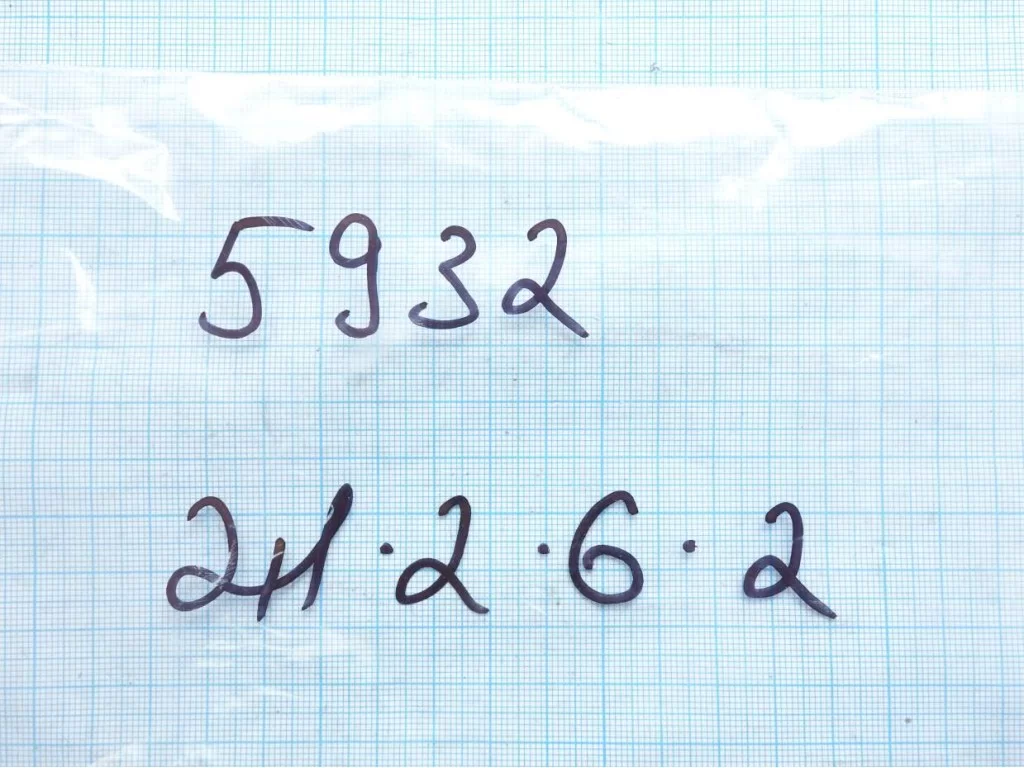 5932
21·2·6·2